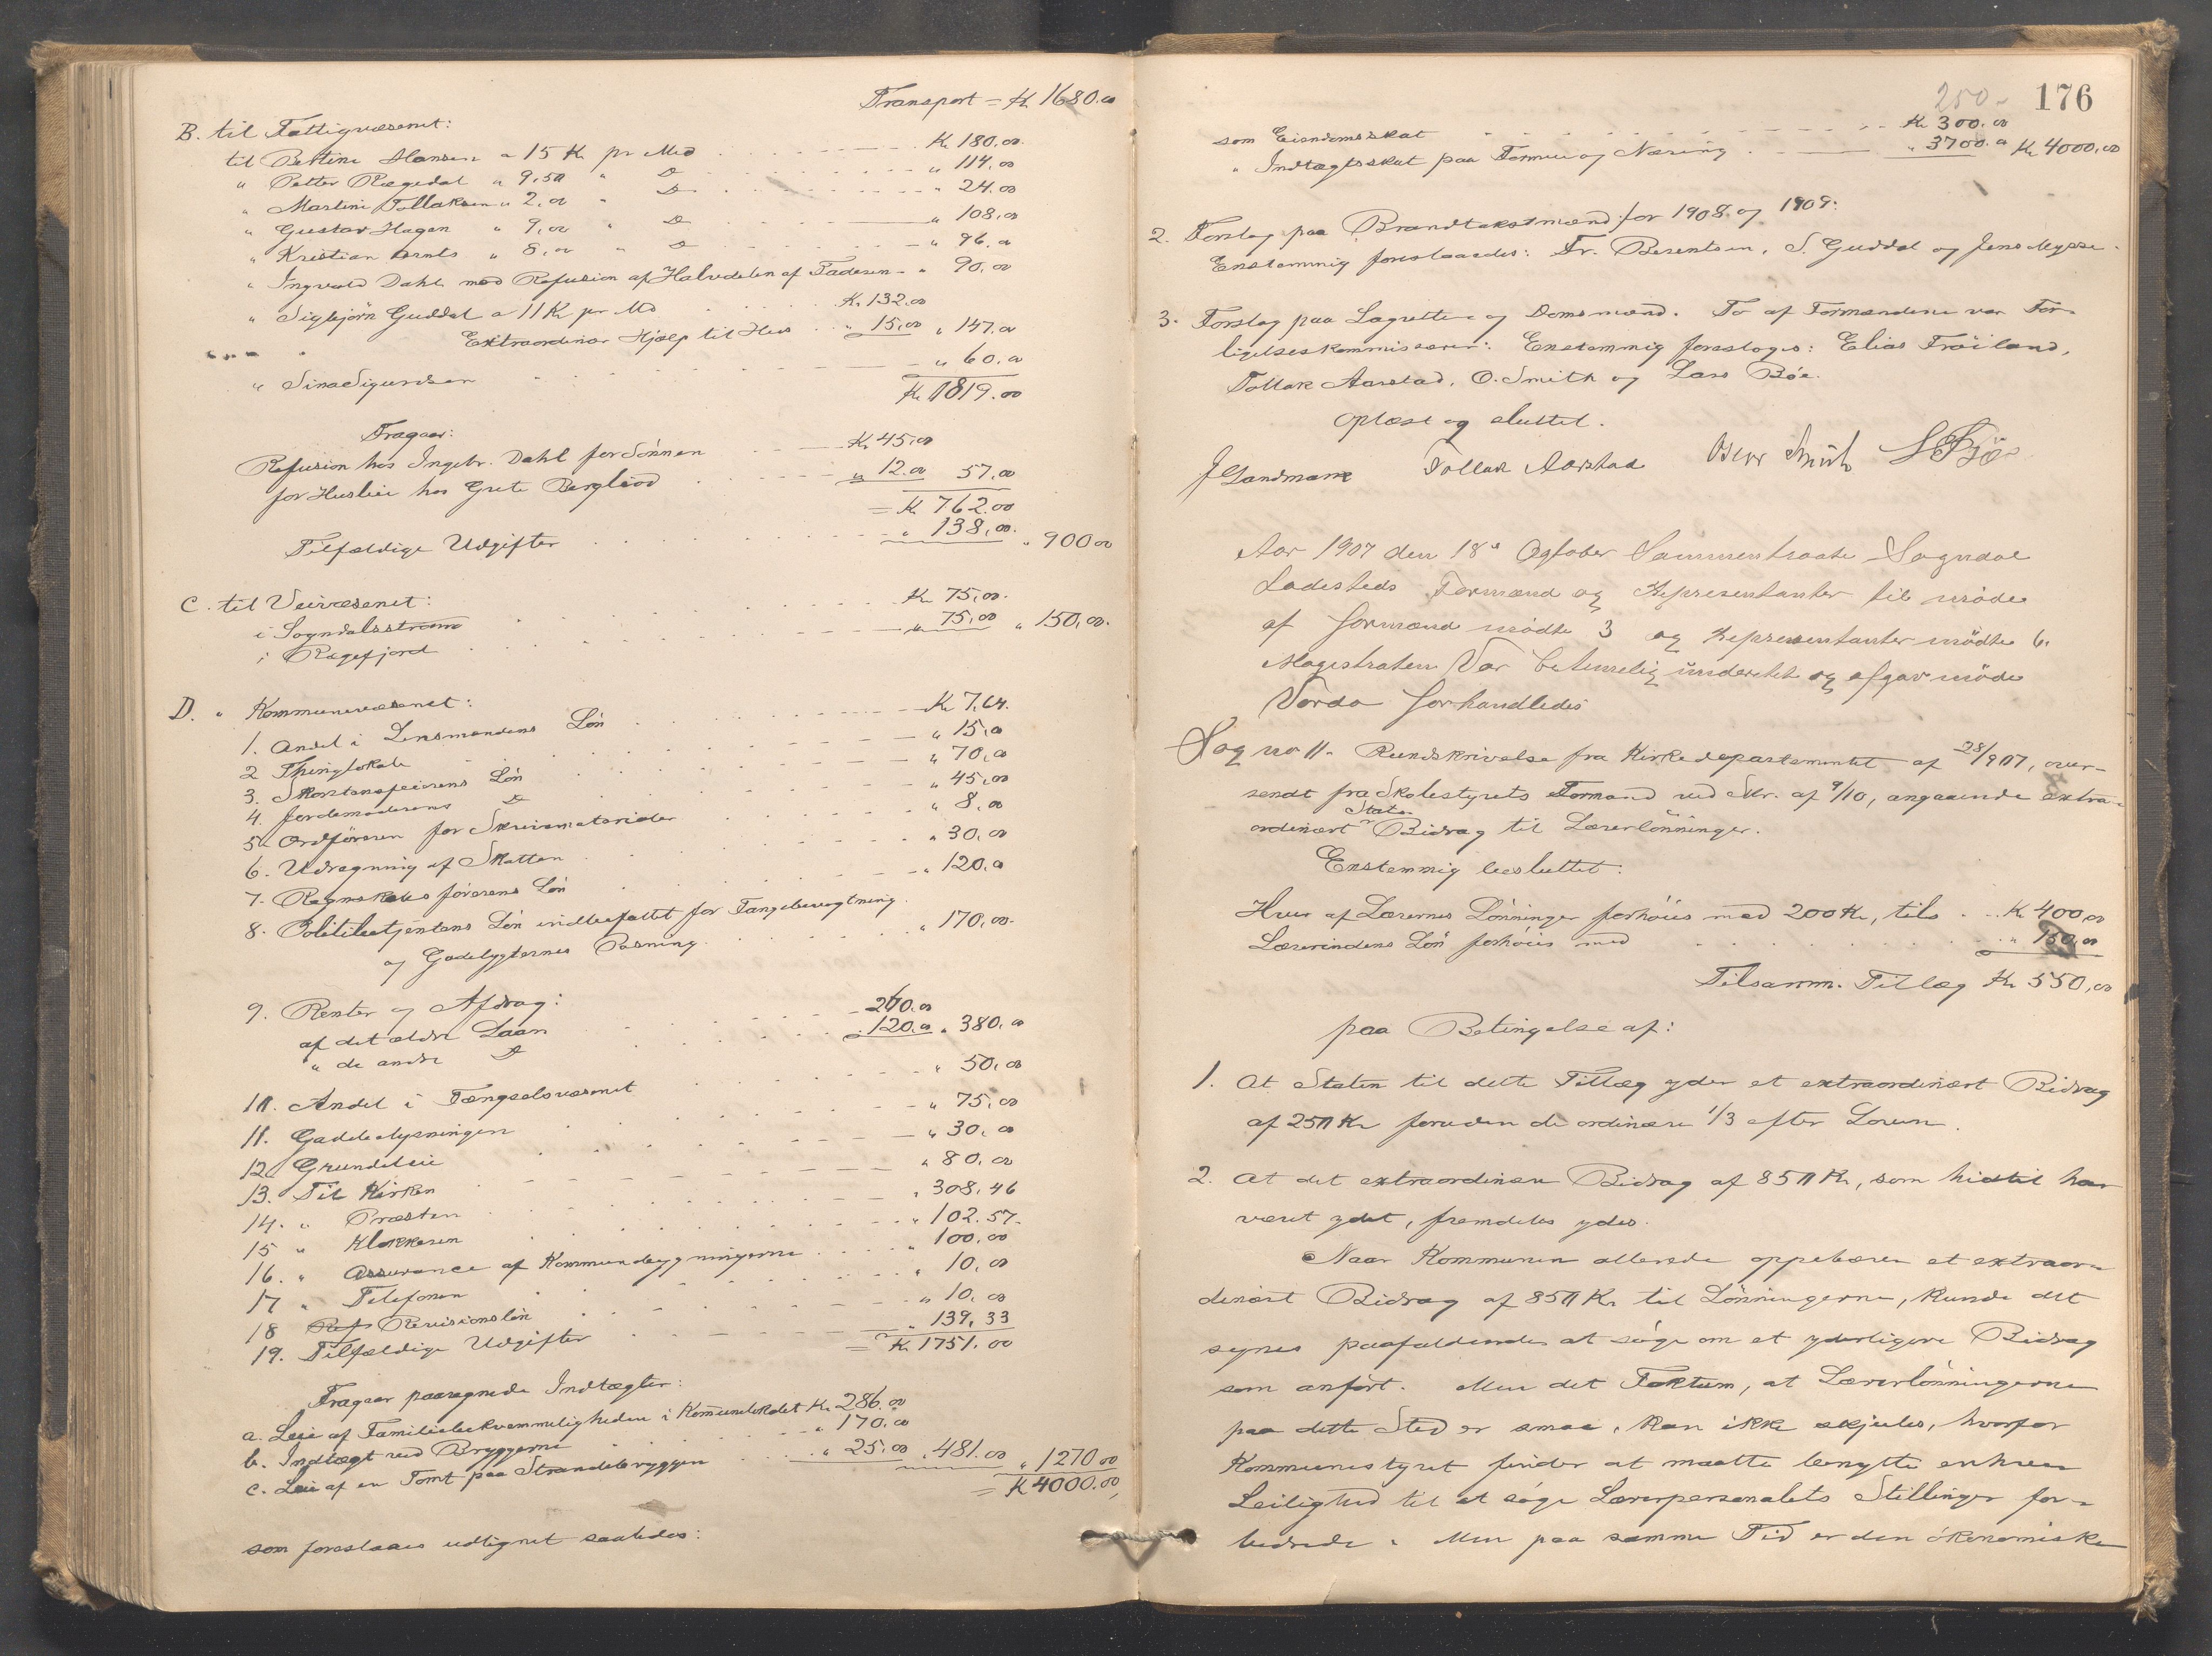 Transport = Kr 1680.00
B. til Fattigvæsenet:
til Bertine Hansen a 15 Kr pr Md Kr. 180,00.
" Petter Rægedal " 9,50 " Do " 114,00
" Martine Tollaksen " 2,00 " Do " 24.00
" Gustav Hagen " 9,00 " Do " 108,00
" Kristian " 8,00 " Do " 96.00
" Ingvald Dahl med Refusion af Halvdelen af Faderen " 90,00
" Sigbjörn Guddal a 11 Kr pr Md Kr. 132.00
Extraordinær Hjælp til Hus " 15,00 " 147.00
" Sina Sigurdsen " 60.00
Kr 819.00
Fragaar:
Refusion hos Ingebr. Dahl for Sönnen Kr 45,00
for Husleie hos Grete Bergliod " 12.00 57,00
= Kr 762.00
Tilfældige Udgifter " 138,00. " 900 00
C. til Veivæsenet:
i Sogndalsstrøm Kr 75,00.
i Rægefjord " 75,00 " 150,00.
D. " Kommunevæsenet:
1. Andel i Lensmandens Lön Kr 7,64.
2 Thinglokale " 15,00
3. Skorstensfeierens Lön " 70,00
4. Jordemoderens Do " 45,00
5. Ordföreren for Skrivematerialer " 8,00
6. Udregning af Skatten " 30,00
7. Regnskabsförerens Lön " 120,00
8. Politibetjentens Lön indbefattet for Fangebevogtning
og Gadelygternes Pasning " 170,00.
9. Renter og Afdrag:
af det ældre Laan 260.00
" de andre Do 120.00 " 380,00
10. Andel i Fængselsvæsenet " 50,00
11. Gadebelysningen " 75,00
12 Grundleie " 30,00
13. Til Kirken " 80,00
14. " Præsten " 308,46
15 " Klokkeren " 102.57.
16. " Assurance af Kommunebygningerne " 100,00
17 " Telefonen " 10,00
18 Refs Revisionslön " 10,00
19. Tilfældige Udgifter " 139,33
= Kr. 1751.00
Fragaar paaregnede Indtægter:
a. Leie af Familiebekvemmeligheden i Kommunelokalet Kr 286.00
b. Indtægt ved Bryggerne " 170,00
c. Leie af en Tomt paa Strandebryggen " 25,00 " 481.00 " 1270 00
= Kr 4000.00
som foreslaaes udlignet saaledes:
250- 176
som Eiendomsskat Kr 300.00
" Indtægtsskat paa Formue og Næring " 3700.00 Kr 4000,00
2. Forslag paa Brandtakstmænd for 1908 og 1909:
Enstemmig foreslaaedes: Fr. Berentsen, S. Guddal og Jens Mysse.
3. Forslag paa Lagrette- og Domsmænd. To af Formændene var For-
ligelseskommissærer: Enstemmig foresloges: Elias Fröiland,
Tollak Aarstad, O. Smith og Lars Böe.
Oplæst og sluttet.
J Sandmann Tollak Aarstad Oscar Smith L Böe
Aar 1907 den 18de October Sammentraadte Sogndal
Ladesteds Formænd og Representanter til möde
af formænd mødte 3 og Representanter mödte 6.
Magistraten Var betimelig underettet og afgav möde
Vorda forhandledes
Sag no 11. Rundskrivelse fra Kirkedepartementet af 28/9 07, over-
sendt fra Skolestyrets Formand ved Skr. af 9/10, angaaende extra-
ordinært Stats Bidrag til Lærerlönninger.
Enstemmig besluttet:
Hver af Lærernes Lönninger forhöies med 200 Kr, tils Kr 400,00
Lærerindens Lön forhöies med " 150,00
Tilsamm. Tillæg Kr 550,00
paa Betingelse af:
1. At Staten til dette Tillæg yder et extraordinært Bidrag
af 250 Kr foruden de ordinære 1/3 efter Loven.
2. At det extraordinære Bidrag af 850 Kr, som hidtil har
været ydet, fremdeles ydes.
Naar Kommunen allerede oppebærer et extraor-
dinært Bidrag af 850 Kr til Lönningerne, kunde det
synes paafaldende at söge om et yderligere Bidrag
som anfört. Men det Faktum, at Lærerlönningerne
paa dette Sted er smaa, kan ikke skjules, hvorfor
Kommunestyret finder at maatte benytte enhver
Leilighed til at söge Lærerpersonalets Stillinger for-
bedrede. Men paa samme Tid er den ökonomiske